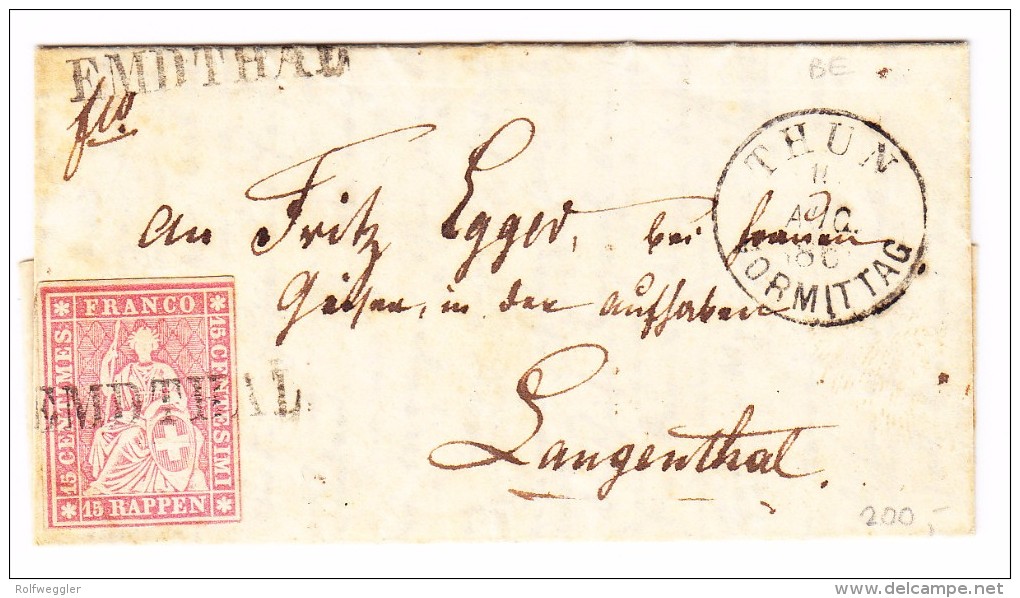 EMDTHAL
BE
fco
THUN
11
AUG.
VORMITTAG
An Fritz Egger, bei
Geiser, in der Aufhaben
Langenthal.
FRANCO
15 CENTIMES
15 CENTESIMI
15 RAPPEN
EMDTHAL
200,-
Rolfweggler
www.delcampe.net